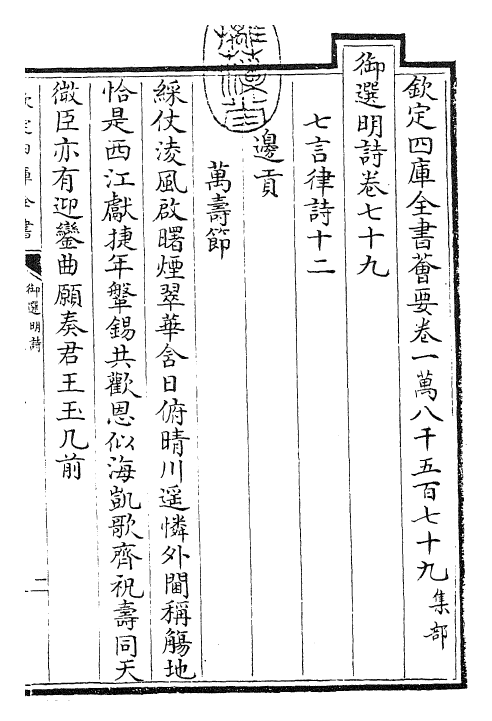 欽定四庫全書薈要卷一萬八千五百七十九集部
御選明詩卷七十九
七言律詩十二
邊貢
萬壽節
綵仗淩風啟曙煙翠華含日俯晴川遥憐外閫稱觴地
恰是西江獻捷年鞶錫共歡恩似海凱歌齊祝壽同天
微臣亦有迎鑾曲願奏君王玉几前
欽定四庫全書
御選明詩